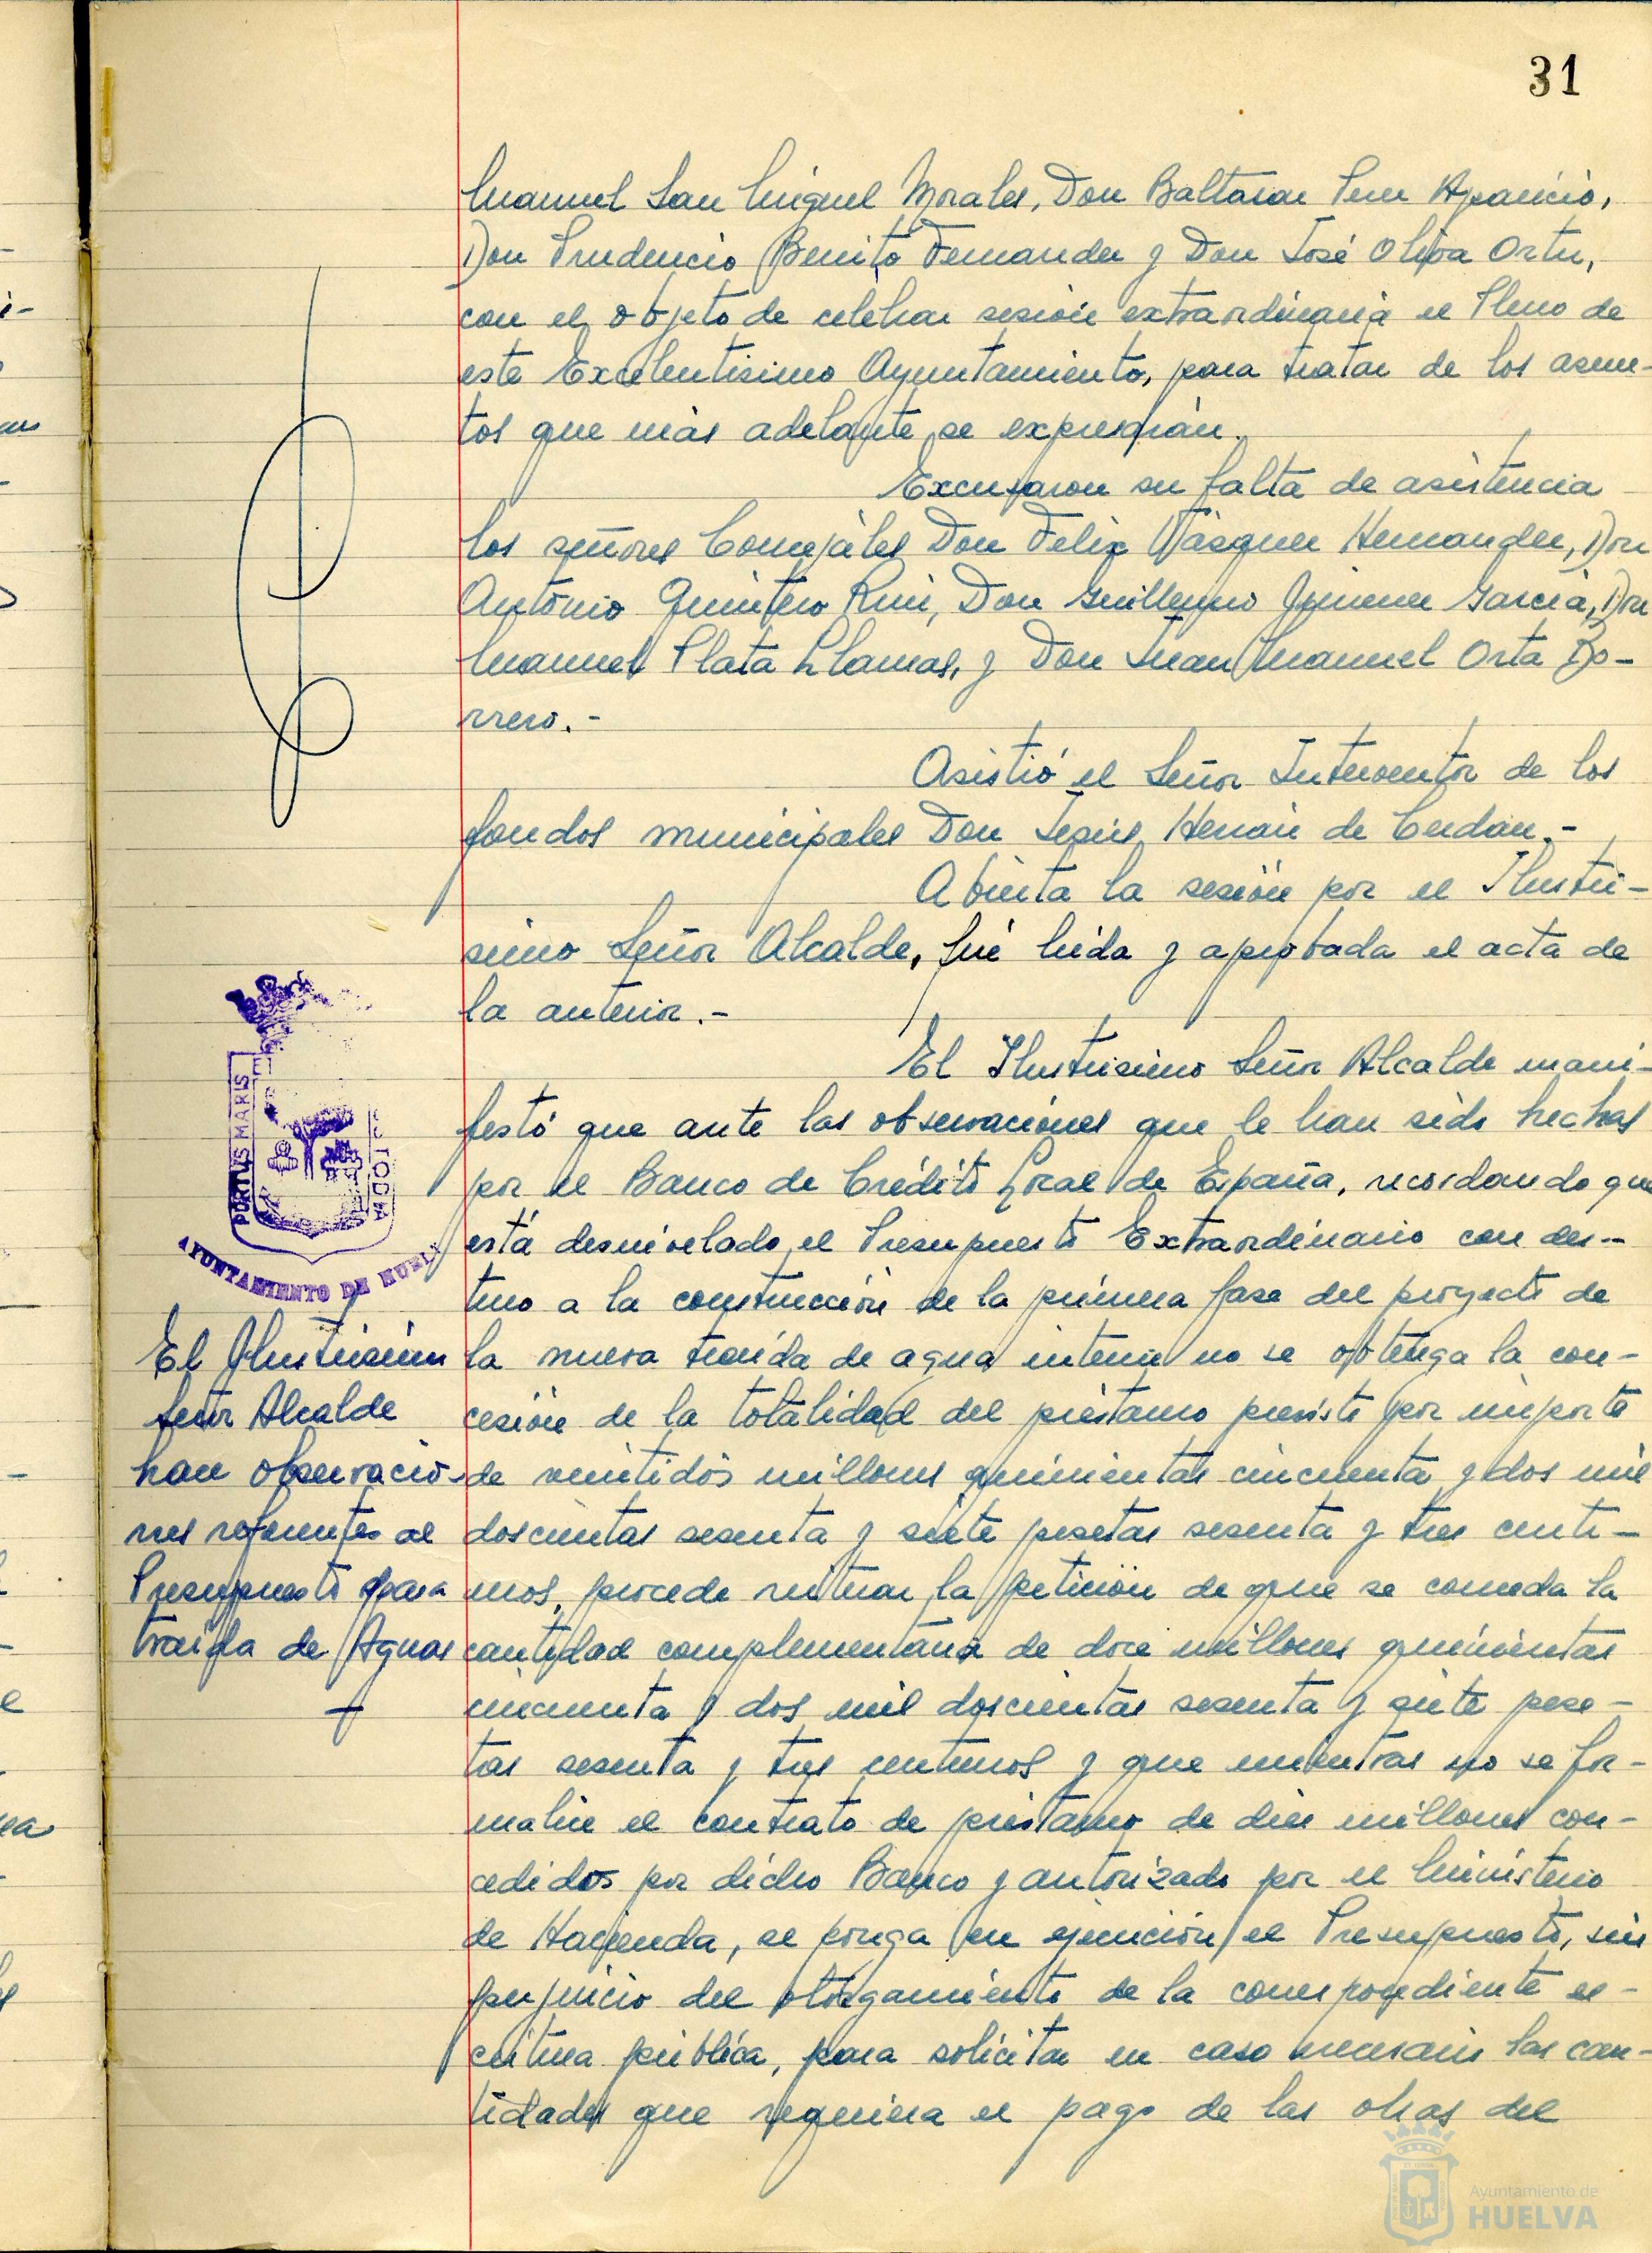 31
Manuel San Miguel Morales, Don Baltasar Pem Aparicio,
Don Prudencio Benito Fernandez y Don José Oliva Ortiz,
con el objeto de celebrar sesión extraordinaria el Pleno de
este Excelentisimo Ayuntamiento, para tratar de los asun-
tos que más adelante se expresarán.
Excusaron su falta de asistencia
los señores Concejales Don Felix Vázquez Hernandez, Don
Antonio Quintero Ruiz, Don Guillermo Jimenez Garcia, Don
Manuel Plata Llamas, y Don Juan Manuel Orta Bo-
rrero.-
Asistió el Señor Interventor de los
fondos municipales Don Jesús Hernán de Cerdán.-
Abierta la sesión por el Ilustri-
simo Señor Alcalde, fué leida y aprobada el acta de
la anterior.-
El Ilustrisimo Señor Alcalde mani-
festó que ante las observaciones que le han sido hechas
por el Banco de Crédito Local de España, recordando que
está desnivelado el Presupuesto Extraordinario con des-
tino a la construcción de la primera fase del proyecto de
la nueva traida de agua interin no se obtenga la con-
cesión de la totalidad del préstamo previsto por importe
de veintidós millones quinientas cincuenta y dos mil
doscientas sesenta y siete pesetas sesenta y tres centi-
mos, procede reiterar la petición de que se conceda la
cantidad complementaria de doce millones quinientas
cincuenta y dos mil doscientas sesenta y siete pese-
tas sesenta y tres centimos y que mientras no se for-
malice el contrato de préstamo de diez millones con-
cedidos por dicho Banco y autorizado por el Ministerio
de Hacienda, se ponga en ejecución el Presupuesto, sin
perjuicio del otorgamiento de la correspondiente es-
critura pública, para solicitar en caso necesario las can-
tidades que requiera el pago de las obras del
PORTUS MARIS
AYUNTAMIENTO DE HUEL
El Ilustrisimo
señor Alcalde
hace observacio-
nes referentes al
Presupuesto para
traida de Aguas
Ayuntamiento de
HUELVA